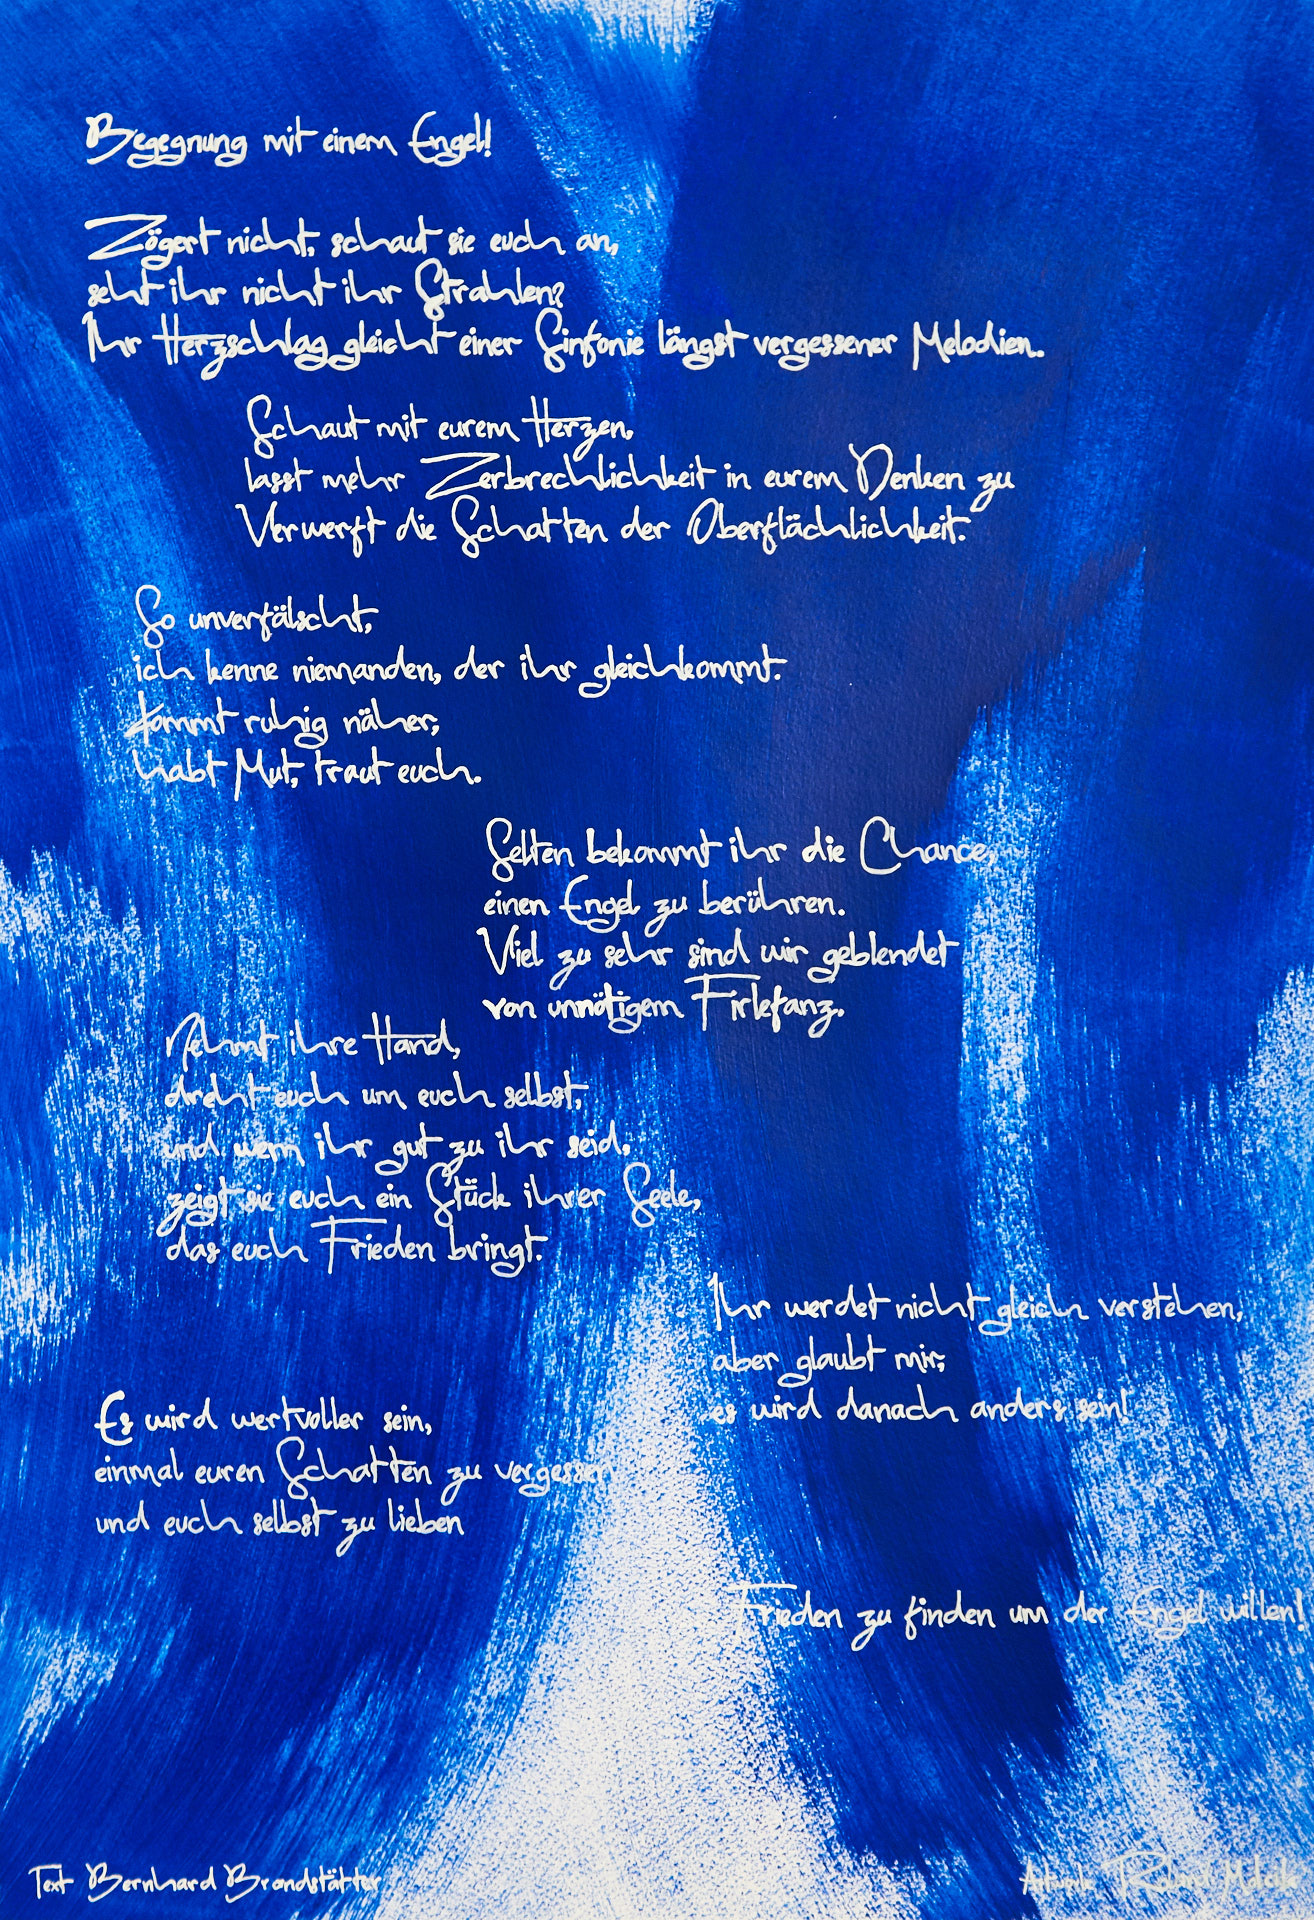 Begegnung mit einem Engel!
Zögert nicht, schaut sie euch an,
seht ihr nicht ihr Strahlen?
Ihr Herzschlag gleicht einer Sinfonie längst vergessener Melodien.
Schaut mit eurem Herzen,
lasst mehr Zerbrechlichkeit in eurem Denken zu
Verwerft die Schatten der Oberflächlichkeit.
So unverfälscht,
ich kenne niemanden, der ihr gleichkommt.
Kommt ruhig näher,
habt Mut, traut euch.
Selten bekommt ihr die Chance,
einen Engel zu berühren.
Viel zu sehr sind wir geblendet
von unnötigem Firlefanz.
Nehmt ihre Hand,
dreht euch um euch selbst,
und wenn ihr gut zu ihr seid,
zeigt sie euch ein Stück ihrer Seele,
das euch Frieden bringt.
Ihr werdet nicht gleich verstehen,
aber glaubt mir,
es wird danach anders sein!
Es wird wertvoller sein,
einmal euren Schatten zu vergessen
und euch selbst zu lieben
Frieden zu finden um der Engel willen!
Text Bernhard Brandstätter
Artwork Roland